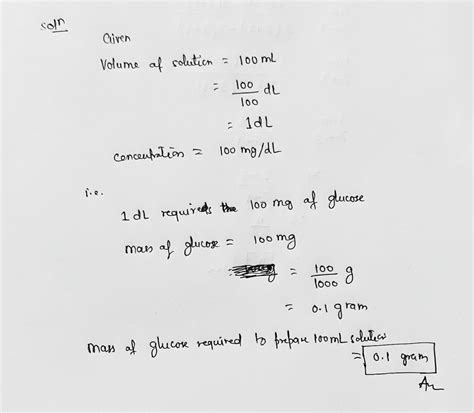 Soln
Given
Volume of solution = 100 ml
= 100/100 dL
= 1dL
concentration = 100 mg/dL
i.e.
1 dL requires the 100 mg of glucose
mass of glucose = 100 mg
= 100/1000 g
= 0.1 gram
mass of glucose required to prepare 100mL solution
= 0.1 gram
Ans